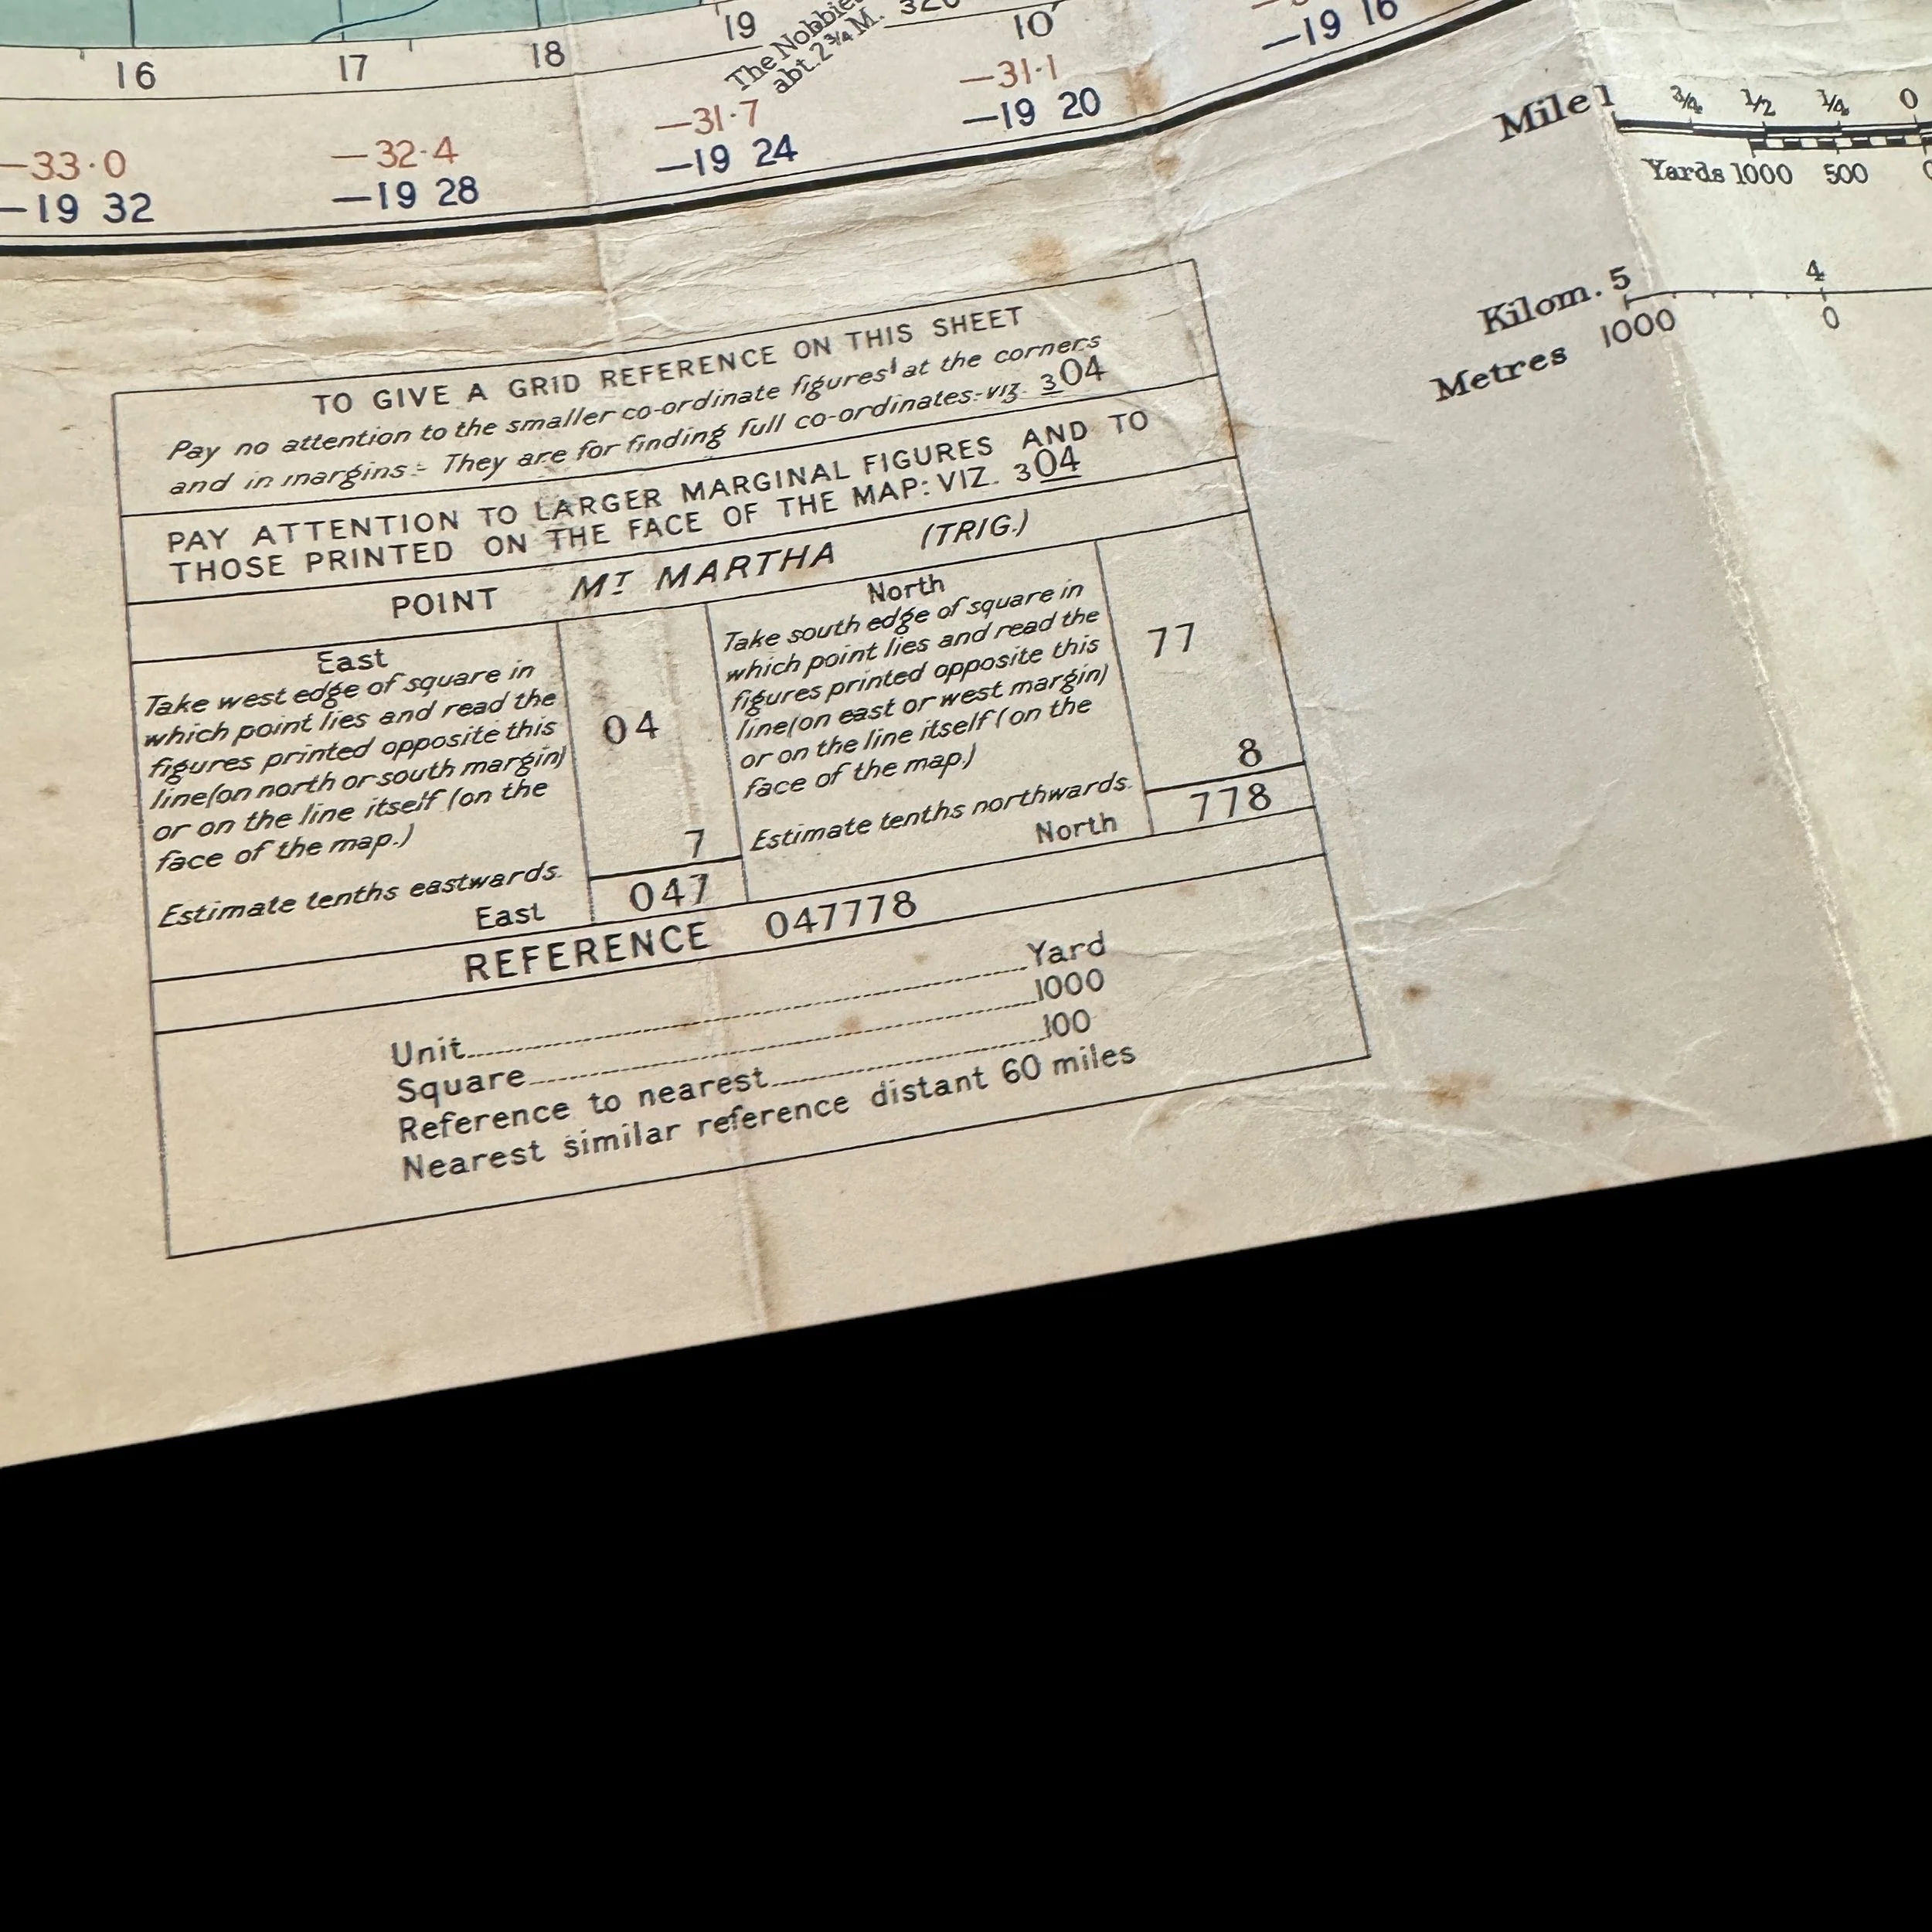 16 17 18 19 10′
The Nobbies
abt. 2¾ M.
—33·0 —32·4 —31·7 —31·1
—19 32 —19 28 —19 24 —19 20 —19 16
Mile 1 ¾ ½ ¼ 0
Yards 1000 500
Kilom. 5 4
Metres 1000 0
TO GIVE A GRID REFERENCE ON THIS SHEET
Pay no attention to the smaller co-ordinate figures at the corners
and in margins:- They are for finding full co-ordinates:-viz. 304
PAY ATTENTION TO LARGER MARGINAL FIGURES AND TO
THOSE PRINTED ON THE FACE OF THE MAP: VIZ. 304
POINT MT MARTHA (TRIG.)
East
Take west edge of square in
which point lies and read the
figures printed opposite this
line(on north or south margin)
or on the line itself (on the
face of the map.)
04
Estimate tenths eastwards.
7
East 047
North
Take south edge of square in
which point lies and read the
figures printed opposite this
line(on east or west margin)
or on the line itself (on the
face of the map.)
77
Estimate tenths northwards.
8
North 778
REFERENCE 047778
Unit Yard
Square 1000
Reference to nearest 100
Nearest similar reference distant 60 miles